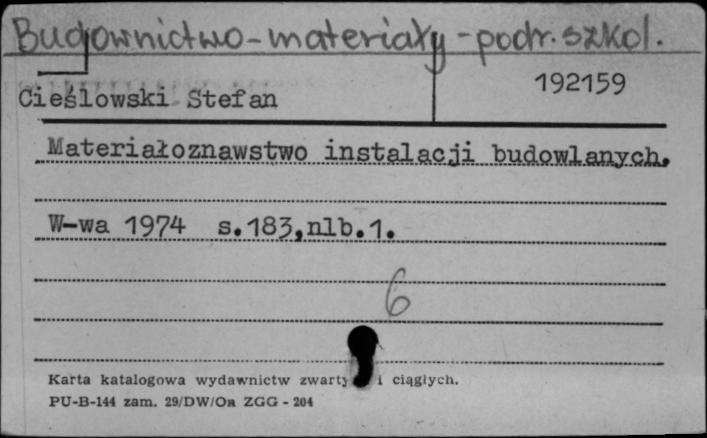 Budownictwo - materiały - podr. szkol.
192159
Cieślowski Stefan
Materiałoznawstwo instalacji budowlanych.
W-wa 1974 s.183,nlb.1.
6
Karta katalogowa wydawnictw i ciągłych.
PU-B-144 zam. 29/DW/On ZGG - 204